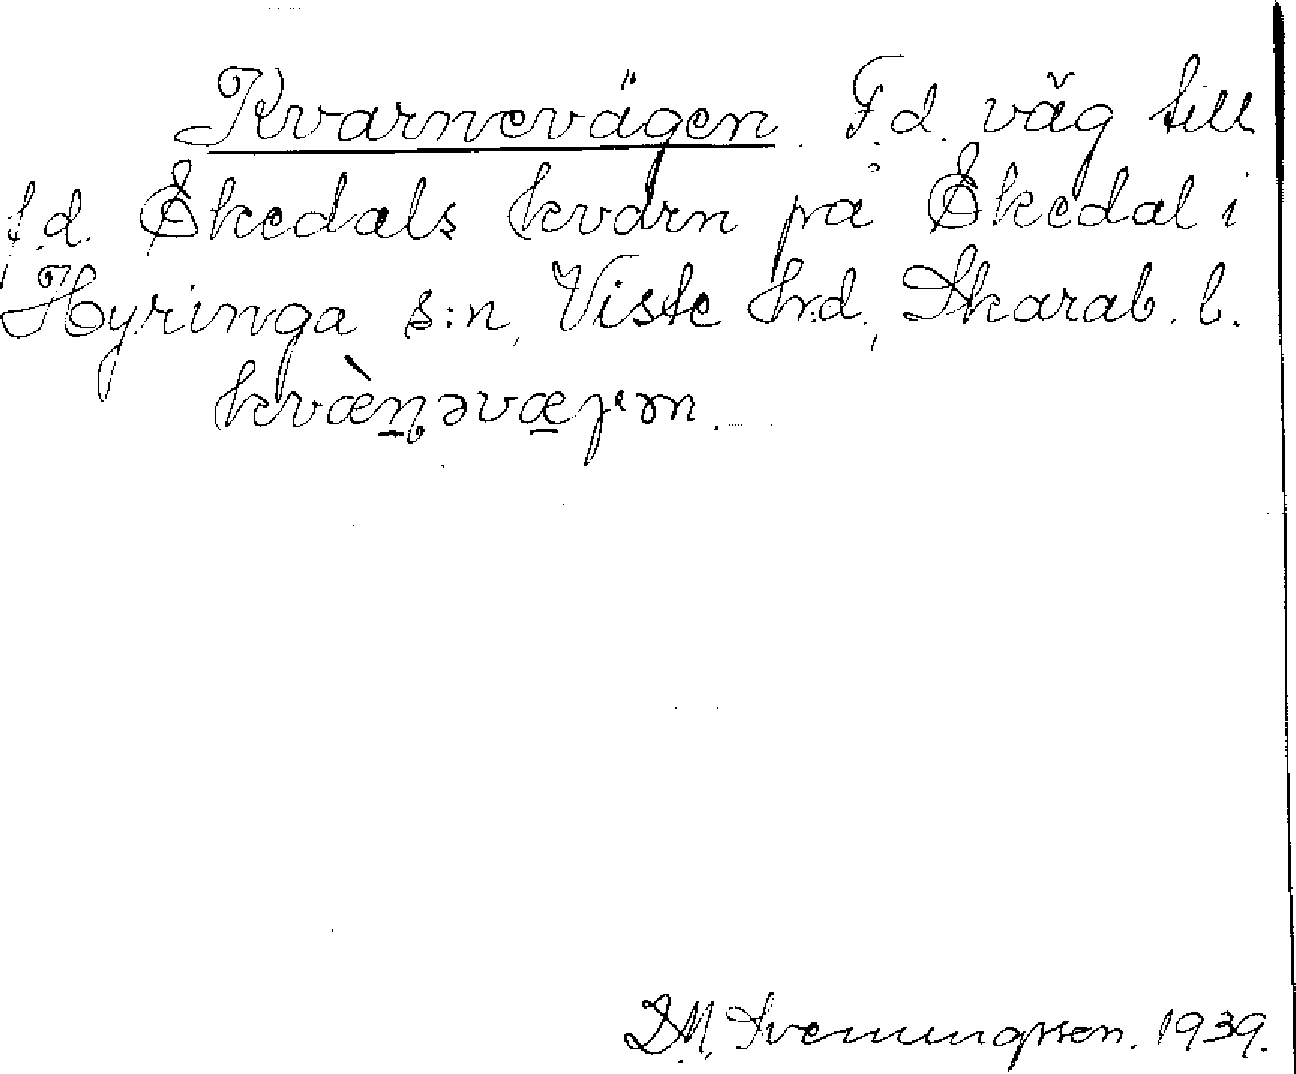 Kvarnevägen. F.d. väg till
f.d. Ekedals kvarn på Ekedal i
Hyringa s:n, Viste hrd, Skarab. l.
D.M. Svenungsson. 1939.